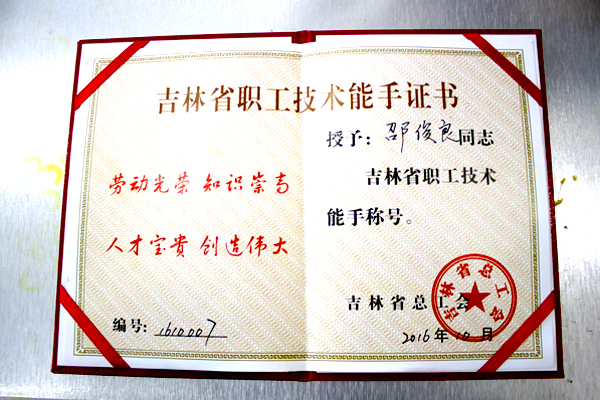 吉林省职工技术能手证书
劳动光荣 知识崇高
人才宝贵 创造伟大
编号：1610007
授予：邵俊良同志
吉林省职工技术
能手称号。
吉林省总工会
2016年10月
吉林省总工会